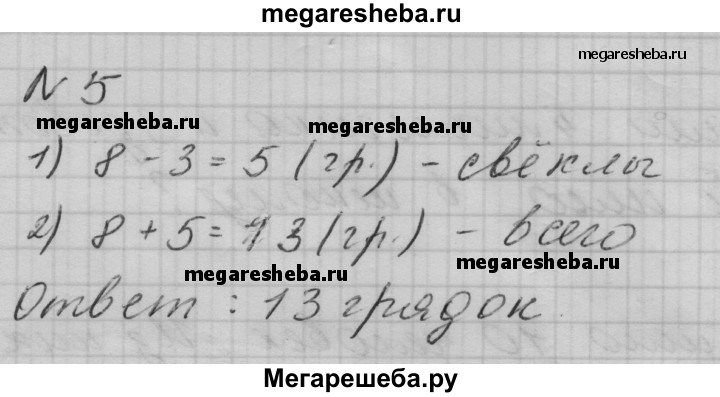 megaresheba.ru
megaresheba.ru
№ 5
megaresheba.ru
megaresheba.ru
1) 8 - 3 = 5 (гр.) - свёклы
2) 8 + 5 = 13 (гр.) - всего
megaresheba.ru
megaresheba.ru
Ответ : 13 грядок.
Мегарешеба.ру